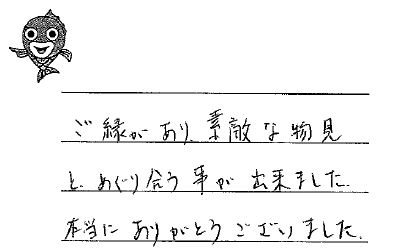 ご縁があり、素敵な物見
と、めぐり合う事が出来ました。
本当にありがとうございました。